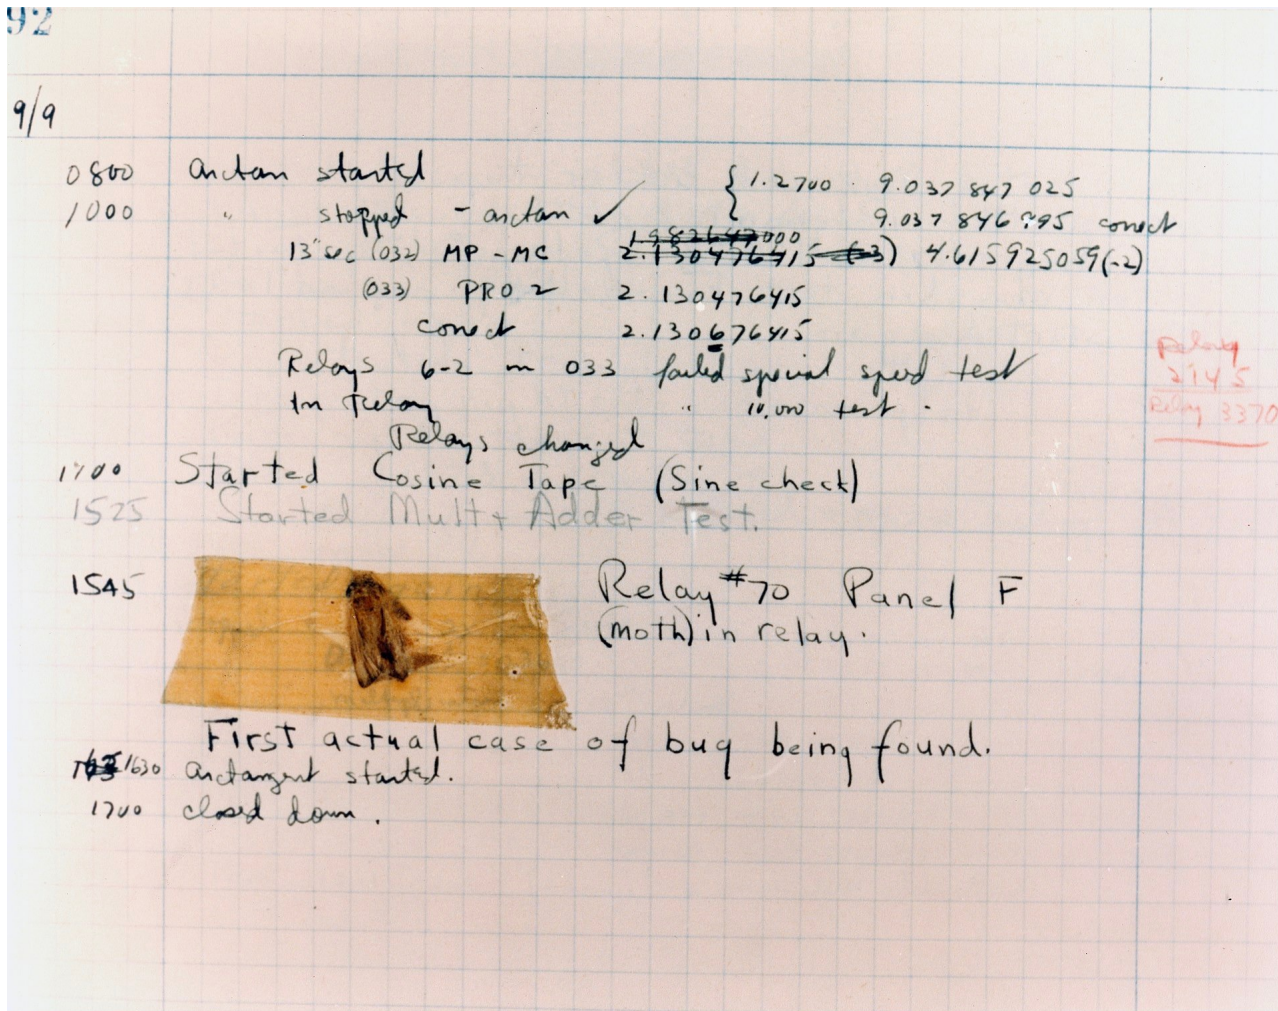 92
9/9
0800 arctan started { 1.2700 9.037 847 025
1000 " stopped - arctan ✓ 9.037 846 995 correct
13" sec (032) MP - MC 1.982647000 2.130476415 (-3) 4.615925059(-2)
(033) PRO 2 2.130476415
correct 2.130676415
Relays 6-2 in 033 failed special speed test
In Relay " 10,000 test .
Relays changed
Relay
2145
Relay 3370
1700 Started Cosine Tape (Sine check)
1525 Started Mult + Adder Test.
1545 Relay #70 Panel F
(moth) in relay.
First actual case of bug being found.
1630 arctangent started.
1700 closed down .